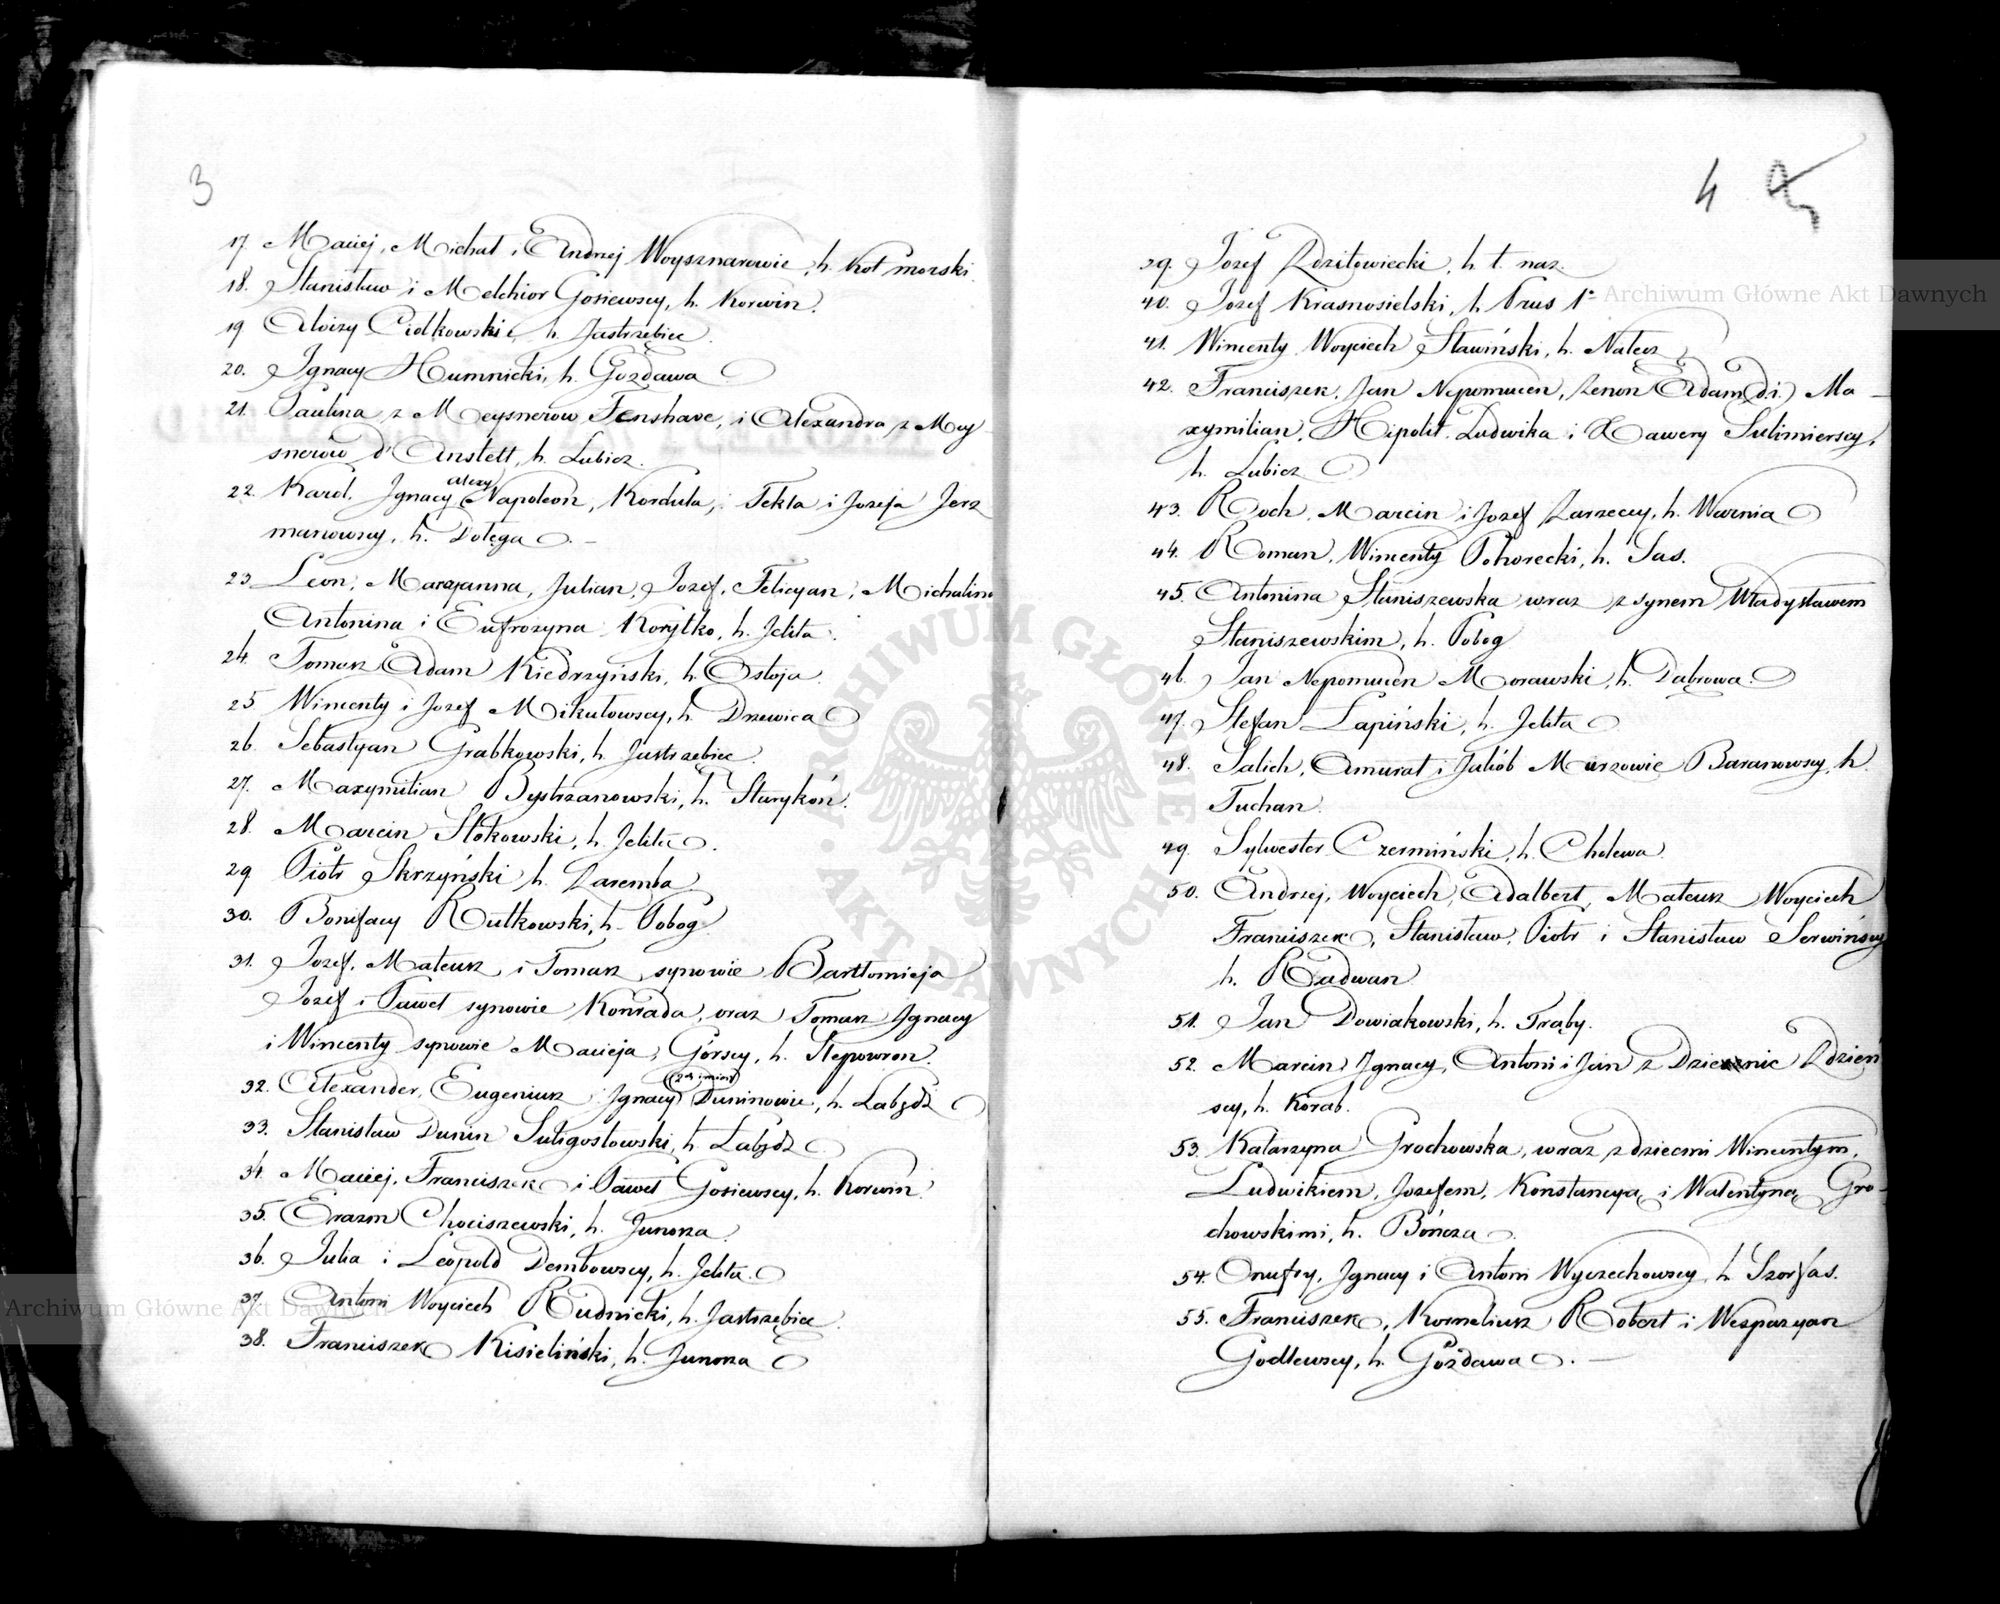 3
17. Maciej, Michał i Andrzej Woysznarowie, h. Kot morski.
18. Stanisław i Melchior Gosiewscy, h. Korwin.
19 Aloizy Ciołkowski, h. Jastrzębiec.
20. Ignacy Humnicki, h. Gozdawa
21. Paulina z Meysnerów Fenshave, i Alexandra z Mey-
snerów d'Anstett, h. Lubicz.
22. Karol, Ignacy Alexy Napoleon, Kordula, Tekla i Jozefa Jerz
manowscy, h. Dołęga. –
23. Leon, Maryanna, Julian, Jozef, Felicyan, Michalina
Antonina i Eufrozyna Korytko, h. Jelita.
24. Tomasz Adam Kiedrzyński, h. Ostoja.
25 Wincenty i Jozef Mikułowscy, h. Drzewica
26. Sebastyan Grabkowski, h. Jastrzębiec.
27. Maxymilian Bystrzanowski, h. Starykoń.
28. Marcin Stokowski, h. Jelita.
29 Piotr Skrzyński h. Zaremba
30. Bonifacy Rutkowski, h. Pobog
31. Jozef, Mateusz i Tomasz synowie Bartłomieja
Jozef i Paweł synowie Konrada, oraz Tomasz Ignacy
i Wincenty synowie Macieja, Górscy, h. Slepowron.
32. Alexander, Eugeniusz Ignacy (2ch imion) Duninowie, h. Łabędź
33. Stanisław Dunin Suligostowski, h. Łabędź
34. Maciej, Franciszek i Paweł Gosiewscy, h. Korwin.
35. Erazm Chociszewski, h. Junosza.
36. Julia i Leopold Dembowscy, h. Jelita.
37. Antoni Woyciech Rudnicki, h. Jastrzębiec.
38. Franciszek Kisieliński, h. Junosza
4
39. Jozef Zdzitowiecki, h. t. naz.
40. Jozef Krasnosielski, h. Prus 1º
41. Wincenty Woyciech Sławiński, h. Nałecz
42. Franciszek, Jan Nepomucen, Zenon Adam (2. i.) Ma-
xymilian, Hipolit, Ludwika i Xawery Sulimierscy,
h. Lubicz
43. Roch, Marcin i Jozef Zarzeccy, h. Warnia
44. Roman, Wincenty Pohorecki, h. Sas.
45. Antonina Staniszewska wraz z synem Władysławem
Staniszewskim, h. Pobog
46. Jan Nepomucen Morawski, h. Dąbrowa.
47. Stefan Łapiński, h. Jelita
48. Salich, Amurat i Jakób Murzowie Baranowscy, h.
Tuchan.
49. Sylwester Czermiński, h. Cholewa.
50. Andrzej, Woyciech, Adalbert, Mateusz Woyciech
Franciszek, Stanisław, Piotr i Stanisław Serwińscy
h. Radwan
51. Jan Dowiakowski, h. Trąby.
52. Marcin, Ignacy, Antoni i Jan z Zdzień
scy, h. Korab.
53. Katarzyna Grochowska, wraz z dziecmi Wincentym,
Ludwikiem, Jozefem, Konstancyą i Walentyną Gro-
chowskimi, h. Bończa.
54. Onufry, Ignacy i Antoni Wyczechowscy, h. Szorfas.
55. Franciszek, Korneliusz Robert i Wespazyan
Godlewscy, h. Gozdawa. –
Archiwum Główne Akt Dawnych
Archiwum Główne Akt Dawnych
ARCHIWUM GŁÓWNE AKT DAWNYCH